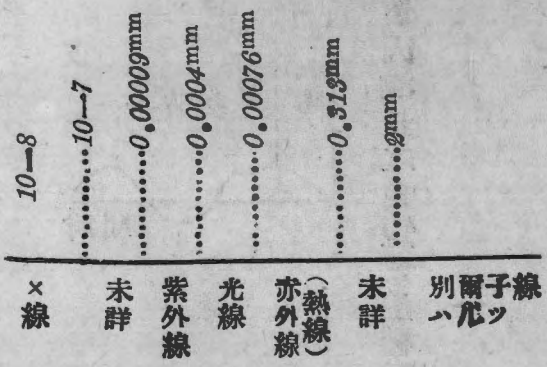 10—8
10—7
0.00009mm
0.0004mm
0.00076mm
0.313mm
2mm
×線
未詳
紫外線
光線
赤外線
(熱線)
未詳
別ハ
爾尼
子ッ
線